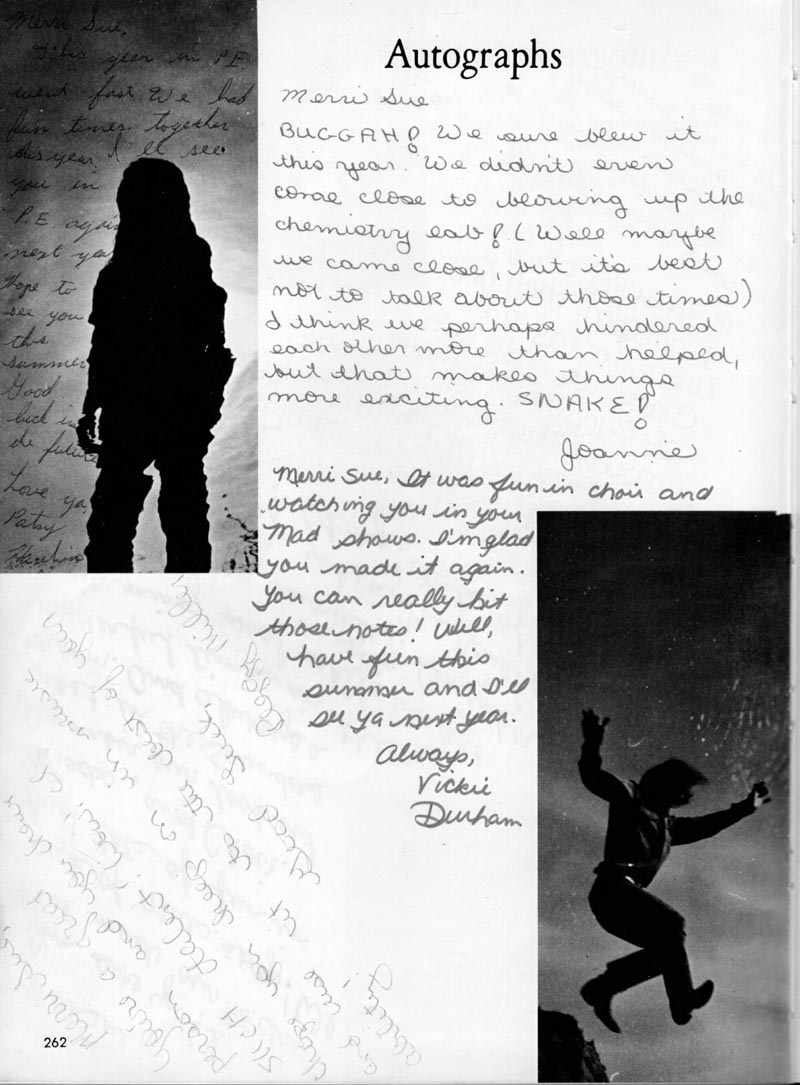 Autographs
Merri Sue,
This year in P.E.
went fast We had
fun times together
this year, I'll see
you in
P.E. again
next year
Hope to
see you
this
summer
Good
luck in
the future
Love ya
Patsy
Merri Sue
BUGGAH! We sure blew it
this year. We didn't even
come close to blowing up the
chemistry lab! (Well maybe
we came close, but it's best
not to talk about those times)
I think we perhaps hindered
each other more than helped,
but that makes things
more exciting. SNAKE!
Joannie
Merri Sue, It was fun in choir and
watching you in your
Mad shows. I'm glad
you made it again.
You can really hit
those notes! Well,
have fun this
summer and I'll
see ya next year.
Always,
Vickie
Durham
Merri Sue,
You're a great
person and you have
SUCH talent. Wow, I
hope you keep on
and use it to the best of your
ability!
Good luck,
Peggy Miller
262